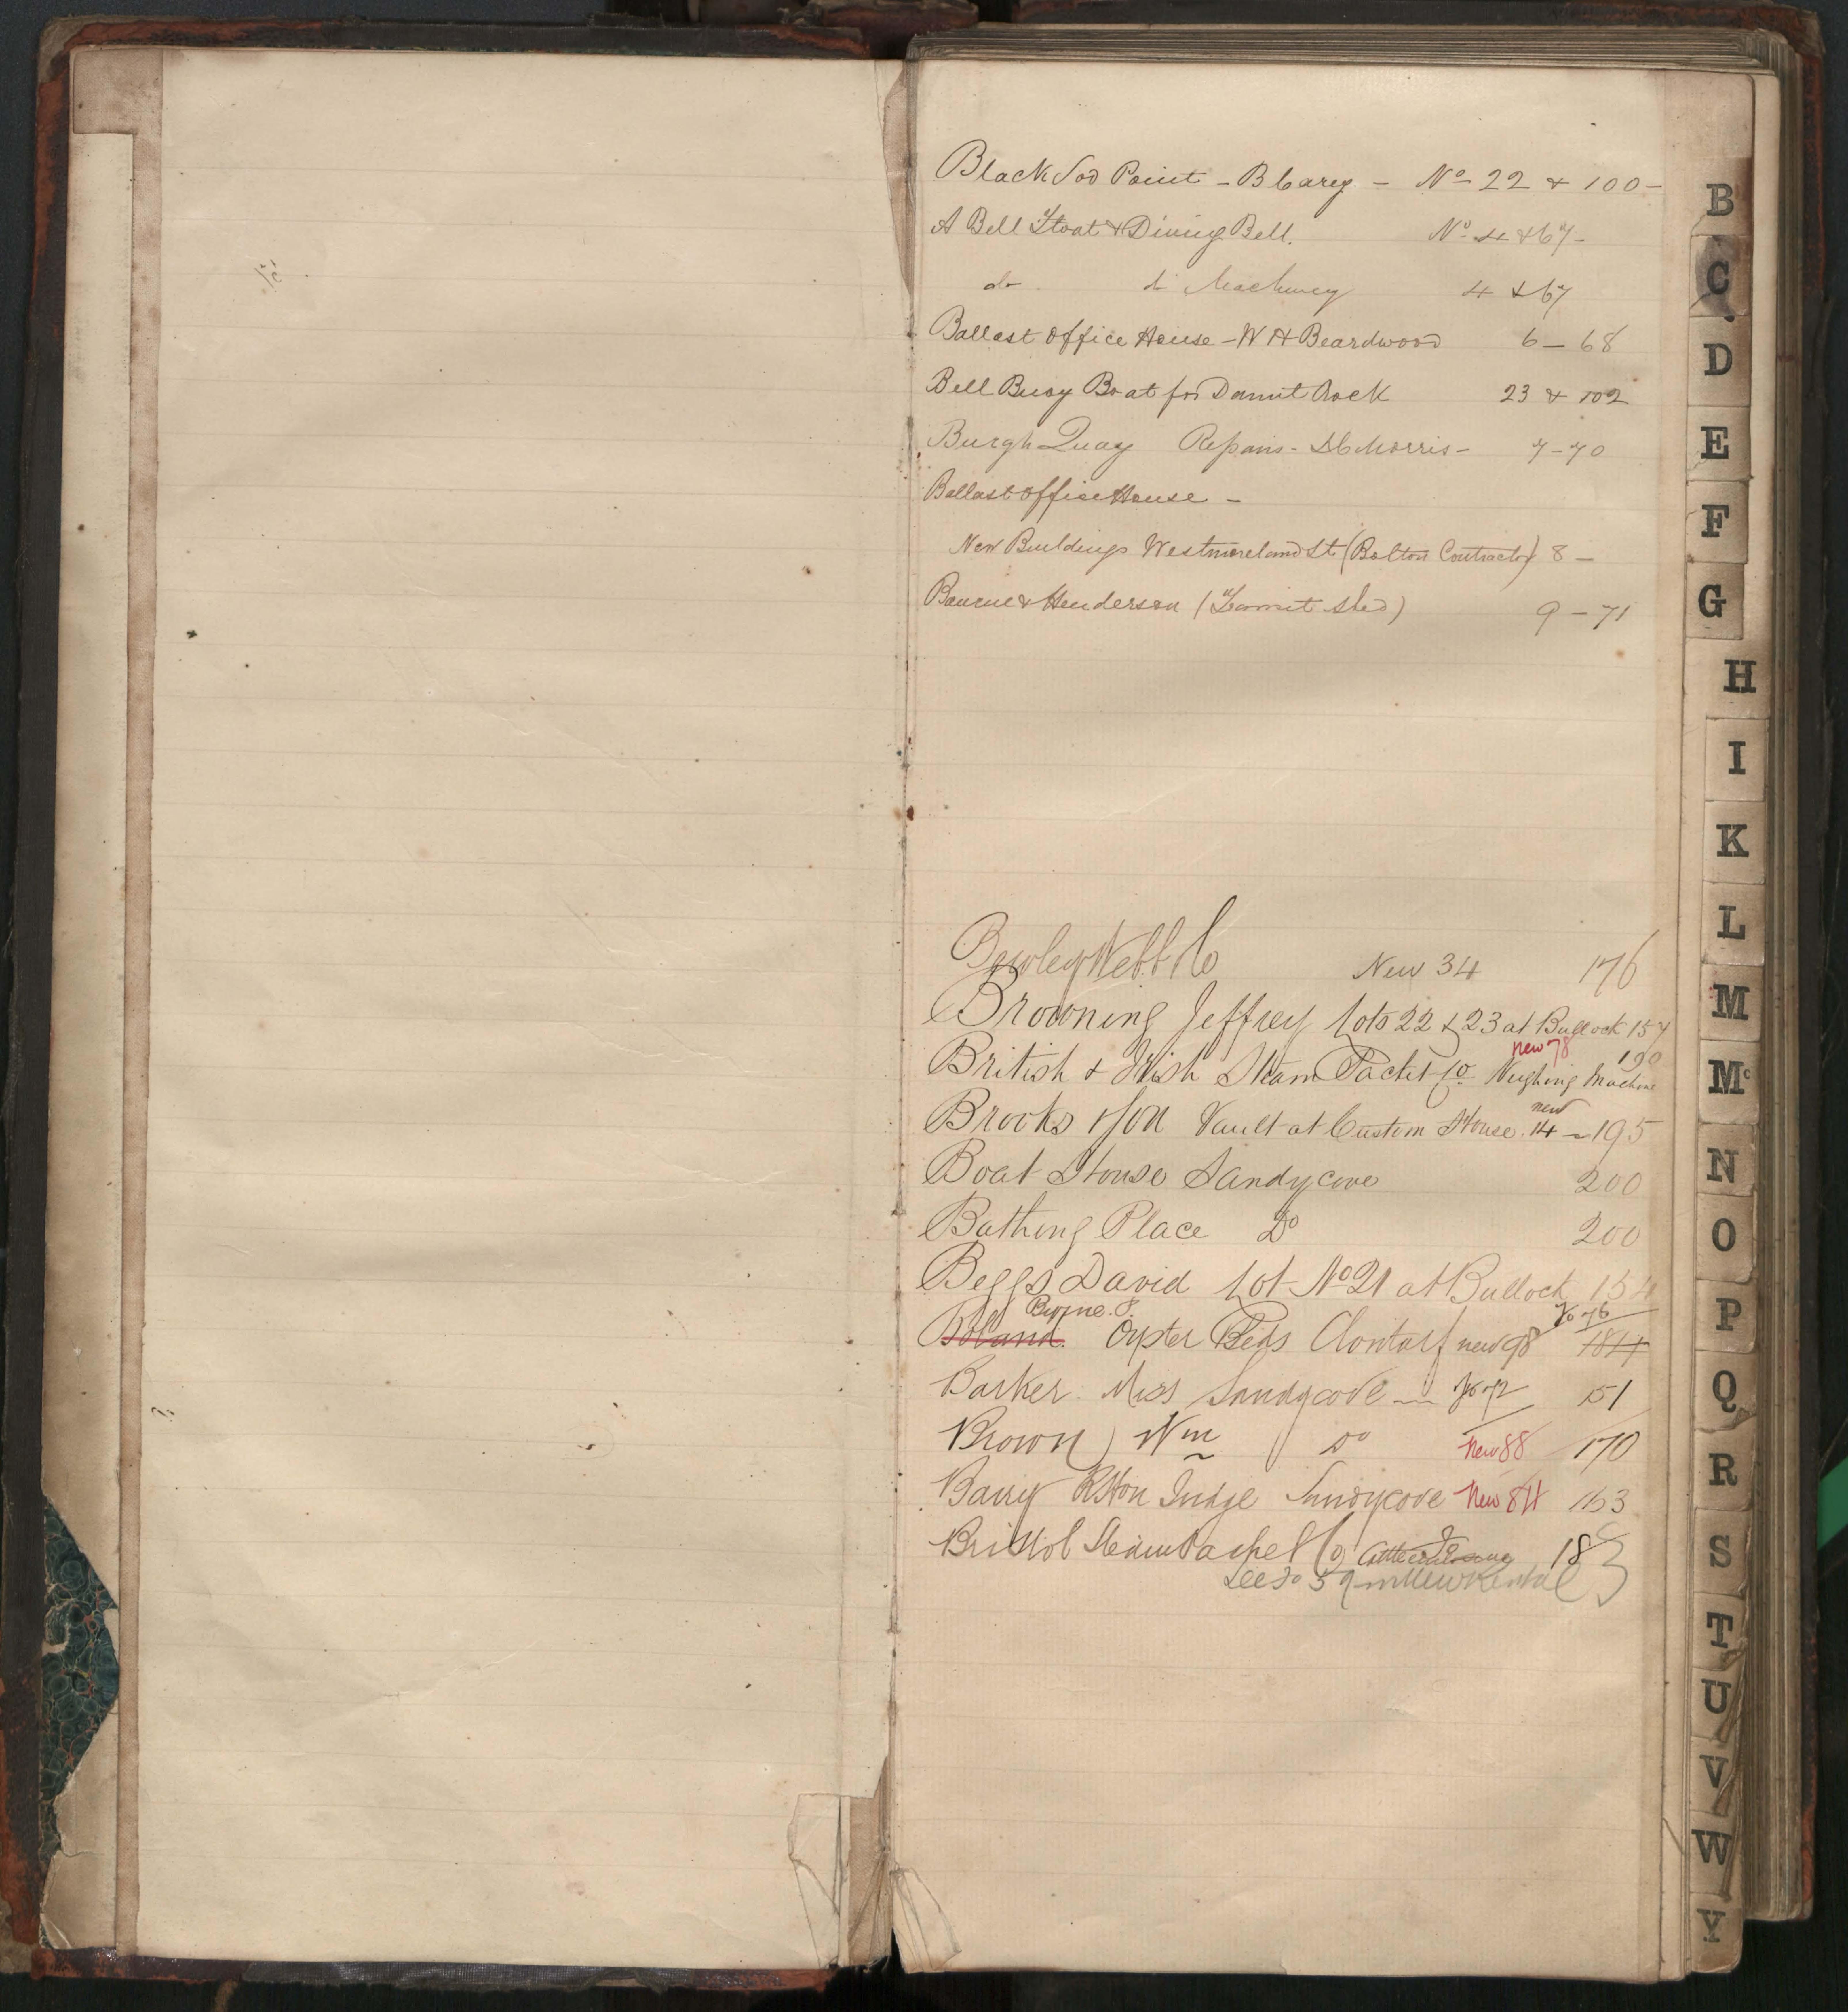 Black Sod Point - B Carey - No 22 & 100 -
A Bell Float & Diving Bell. No 4 & 67 -
do do Machinery 4 & 67
Ballast Office House - W H Beardwood 6 - 68
Bell Buoy Boat for Daunt Rock 23 & 102
Burgh Quay Repairs - Morris - 7 - 70
Ballast Office House -
New Buildings Westmoreland St (Bolton Contractor) 8 -
& Henderson (Transit Shed) 9 - 71
Bewley Webb & Co New 34 176
Browning Jeffrey Lots 22 & 23 at Bullock 157
new 78 190
British & Irish Steam Packet Co Weighing Machine
new
Brooks & Son Vault at Custom House 14 - 195
Boat House Sandycove 200
Bathing Place Do 200
Beggs David Lot No 21 at Bullock 154
Byrne. J. Fo 76
Boland. Oyster Beds Clontarf new 98 184
Barker Miss Sandycove Fo 72 151
Brown Wm Do New 88 170
Barry Rt Hon Judge Sandycove New 84 163
Bristol Steam Packet Co 183
See Fo 59 in New Rental
B
C
D
E
F
G
H
I
K
L
M
Mc
N
O
P
Q
R
S
T
U
V
W
Y